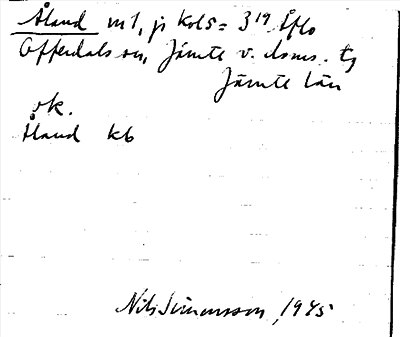 Åland m1, js Kols = 3¹⁹ Åflo
Offerdals sn, Jämte v. doms. tg
Jämte län
ok.
Åland kb
Nils Simonsson, 1945